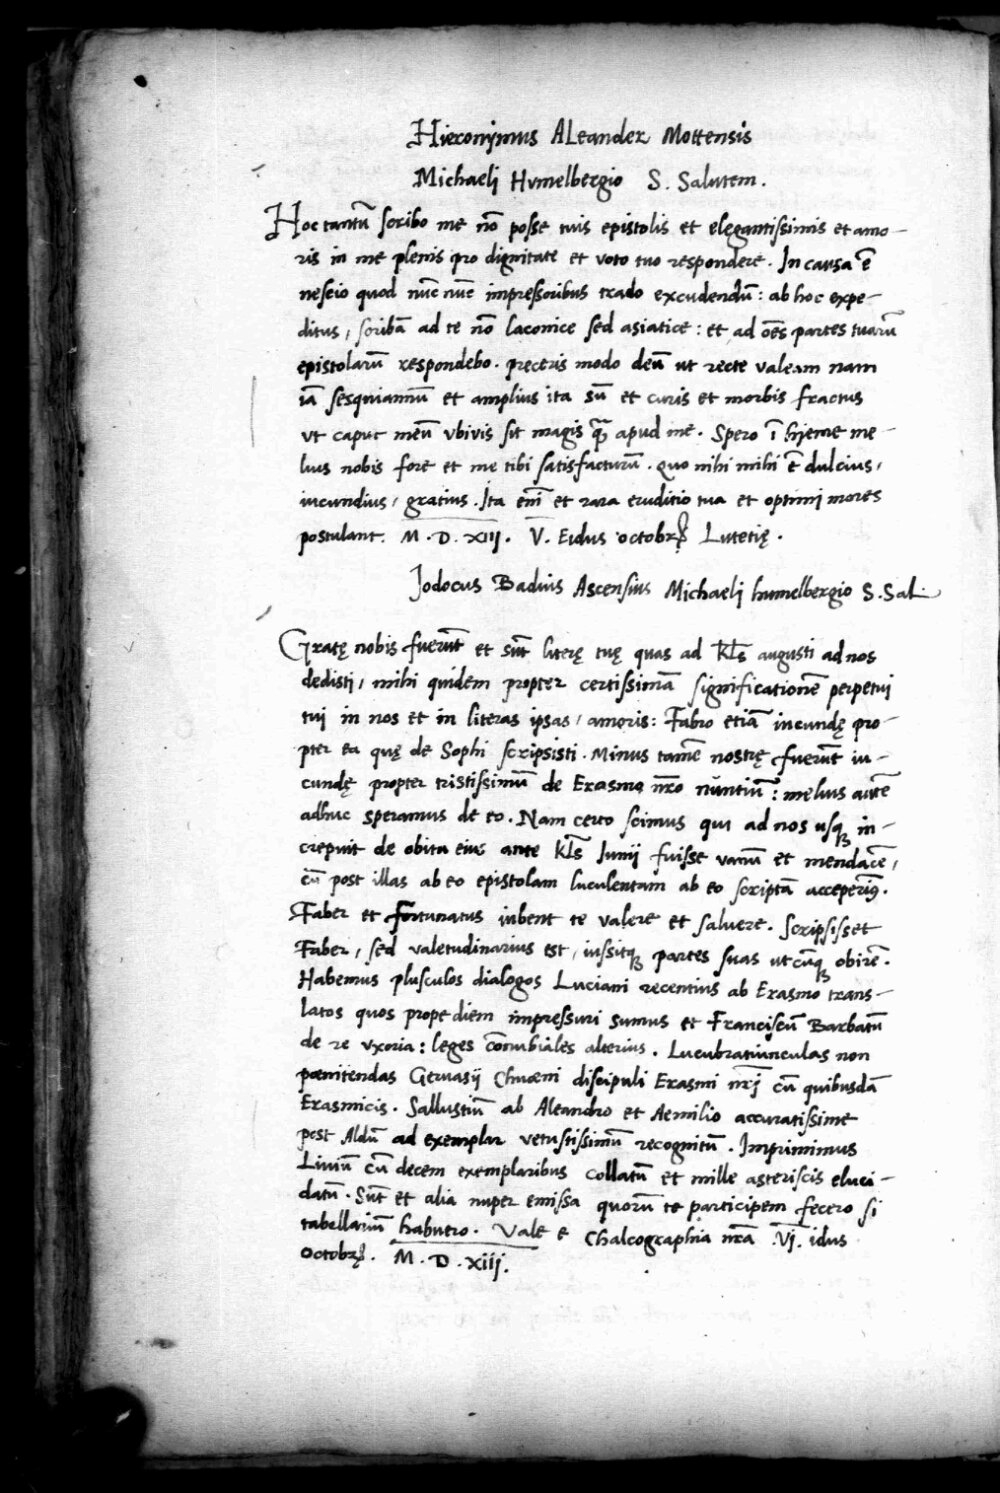 Hieronymus ALeander Mottensis
Michaeli Hvmelbergio S. Salutem.
Hoc tantũ scribo me nõ posse tuis epistolis et elegantissimis et amo-
ris in me plenis pro dignitate et voto tuo respondere. In causa ẽ
nescio quod nũc nũc impressoribus trado excudendũ: ab hoc expe-
ditus, scribã ad te nõ laconice sed asiatice: et ad oẽs partes tuarũ
epistolarũ respondebo. preceris modo deũ ut recte valeam nam
iã sesquiannũ et amplius ita sũ et curis et morbis fractus
vt caput meũ vbivis sit magis q̃ apud me. Spero ĩ hyeme me-
lius nobis fore et me tibi satisfacturũ. quo nihi mihi ẽ dulcius,
iucundius, gratius. Ita em̃ et rara eruditio tua et optimi mores
postulant. M. D. XIII. V. Eidus octobrꝭ Lutetię.
Jodocus Badius Ascensius Michaeli humelbergio S. Sal.
Gratę nobis fuerũt et sũt literę tuę quas ad kl̃s augusti ad nos
dedisti, mihi quidem propter certissimã significationẽ perpetui
tui in nos et in literas ipsas, amoris: Fabro etiã iucundę pro-
pter ea quę de Sophi scripsisti. Minus tamẽ nostrę fuerũt iu-
cundę propter tristissimũ de Erasmo nr̃o nũntiũ: melius autẽ
adhuc speramus de eo. Nam certo scimus qui ad nos usqꝫ in-
crepuit de obitu eius ante kl̃s Junij fuisse vanũ et mendacẽ,
cũ post illas ab eo epistolam luculentam ab eo scriptã acceperiꝰ.
Faber et Fortunatus iubent te valere et saluere. Scripsisset
Faber, sed valetudinarius est, iussitqꝫ partes suas utcũqꝫ obirẽ.
Habemus plusculos dialogos Luciani recentius ab Erasmo trans-
latos quos propediem impressuri sumus et Franciscũ Barbatũ
de re vxoria: leges cõnubiales alterius. Lucubratiunculas non
pœnitendas Geruasij Chuæni discipuli Erasmi nr̃j cũ quibusdã
Erasmicis. Sallustiũ ab Aleandro et Aemilio accuratissime
post Aldũ ad exemplar vetustissimũ recognitũ. Imprimimus
Liuiũ cũ decem exemplaribus collatũ et mille asteriscis eluci-
datũ. Sũt et alia nuper emissa quorũ te participem fecero si
tabellariũ habuero. Vale e Chalcographia nr̃a .VI. idus
Octobrꝭ. M. D. xiij.